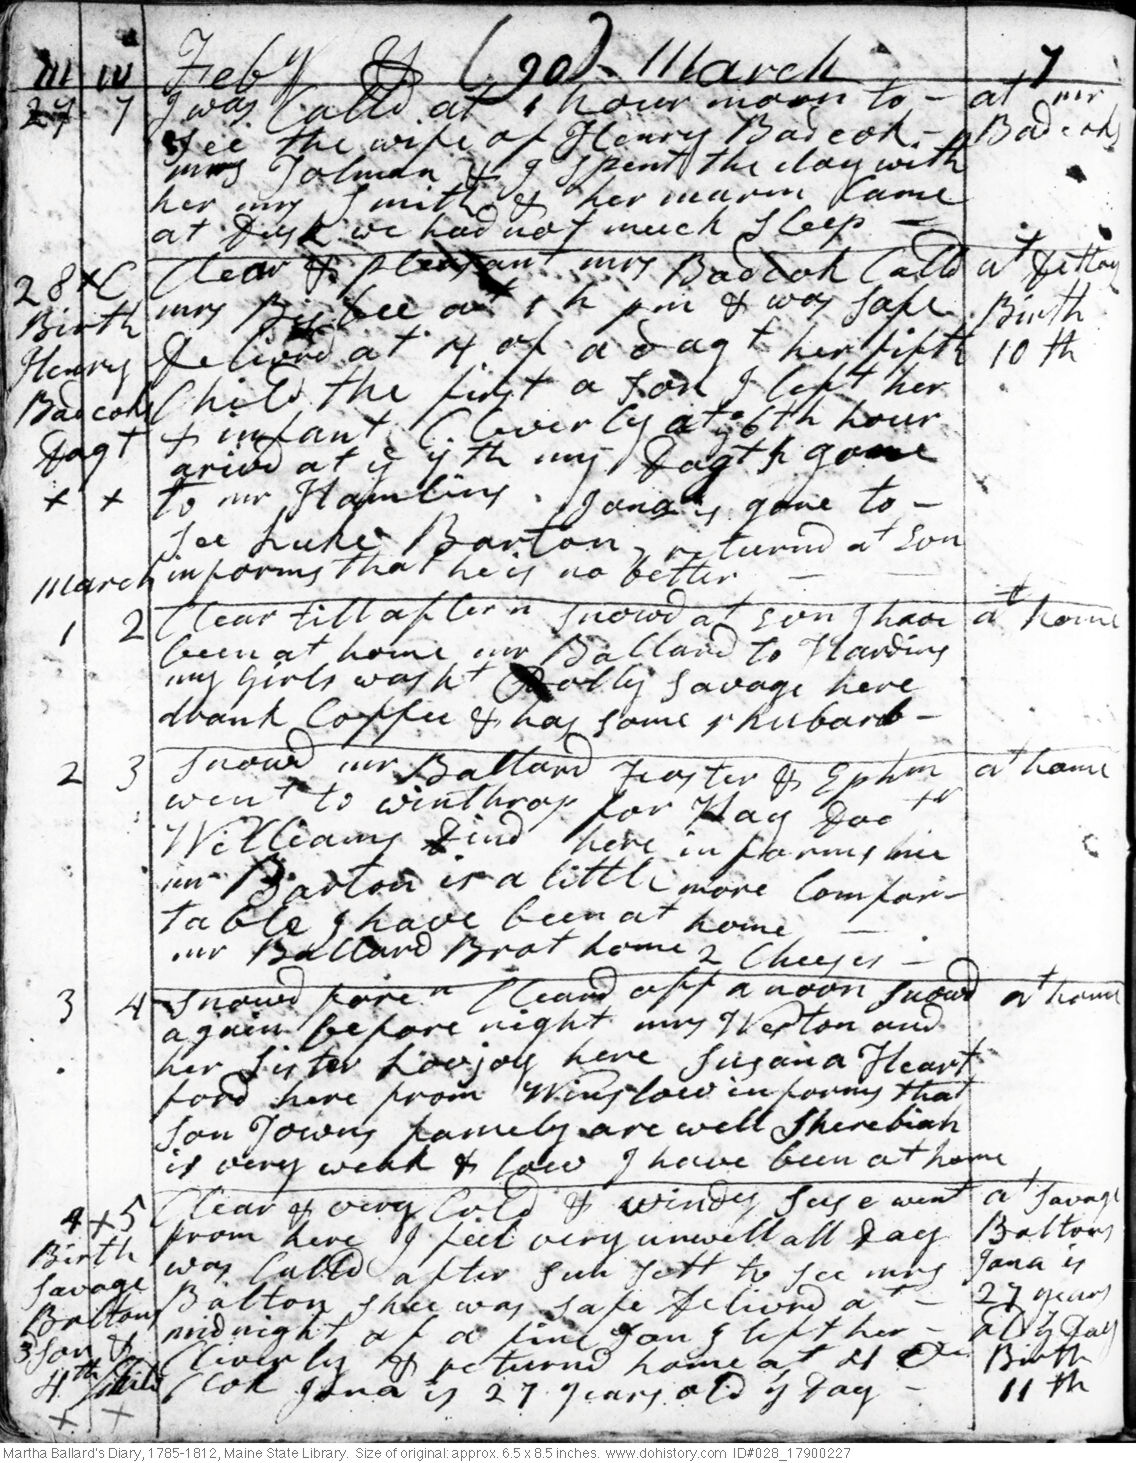 III IV Feby & (90) March 7
27 7 I was Calld at 1 hour morn to - at mr
See the wife of Henry Badcok - Badcoks
mrs Tolman & I spent the day with
her mrs Smith & her marm Came
at Dusk we had not much Sleep -
28 x C Clear & pleasant mrs Badcok Calld at ditto
Birth mrs Bisbee at 1 h pm & was safe Birth
Henry Delivrd at 4 of a Dagt her fifth 10 th
Badcoks Child the first a Son I left her
Dagt & infant Cleverly at ye 6th hour
arivd at ye 7th my Dagt h gone
x x to mr Hamlins. Jona is gone to -
See Luke Barton, returnd at Evn
March informs that he is no better -
1 2 Clear till aftern Snowd at Evn I have at home
been at home mr Ballard to Hardins
my Girls washt Dolly Savage here
drank Coffee & has some rhubarb -
2 3 Snowd mr Ballard & Ephm at home
went to winthrop for Hay Doctr
Williams Dind here informs me
mr Barton is a little more Comfor-
table I have been at home -
mr Ballard Brot home 2 Cheeses -
3 4 Snowd foren Cleard off a noon Snowd at home
again before night mrs Weston and
her Sister Lovjoy here Susana Heart
ford here from Winslow informs that
Son Towns famely are well Sherebiah
is very weak & low I have been at home
4 x 5 Clear & very Cold & windy Suse went at Savage
Birth from here I feel very unwell all Day Boltons
Savage was Calld after Sun Sett to See mrs Jona is
Boltons Bolton shee was safe Delivrd at - 27 years
3 Son & midnight of a fine Son I left her - old ye Day
4th Child Cleverly & returnd home at 4 Birth
Clok Jona is 27 years old ye Day - 11 th
x x
Martha Ballard's Diary, 1785-1812, Maine State Library. Size of original: approx. 6.5 x 8.5 inches. www.dohistory.com ID#028_17900227